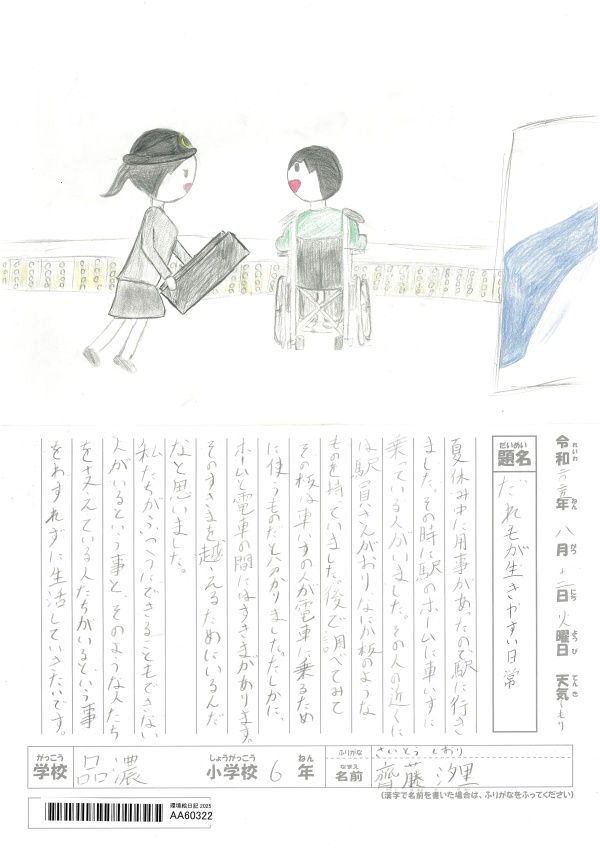 令和二〇二五年 八月十二日 火曜日 天気くもり
れいわ ねん がつ にち ようび てんき
だいめい
題名 だれもが生きやすい日常
夏休み中に用事があったので駅に行き
ました。その時に駅のホームに車いすに
乗っている人がいました。その人の近くに
は駅員さんがおり、なにか板のような
ものを持っていました。後で調べてみて
その板は車いすの人が電車に乗るため
に使うものだと分かりました。たしかに、
ホームと電車の間にはすきまがあります。
そのすきまを越えるためにいるんだ
なと思いました。
私たちがふつうにできることもできない
人がいるという事と、そのような人たち
を支えている人たちがいるという事
をわすれずに生活していきたいです。
がっこう しょうがっこう ねん ふりがな さいとう しおり
学校 品濃 小学校 6 年 なまえ 名前 齊藤 汐里
(漢字で名前を書いた場合は、ふりがなをふってください)
環境絵日記 2025
AA60322